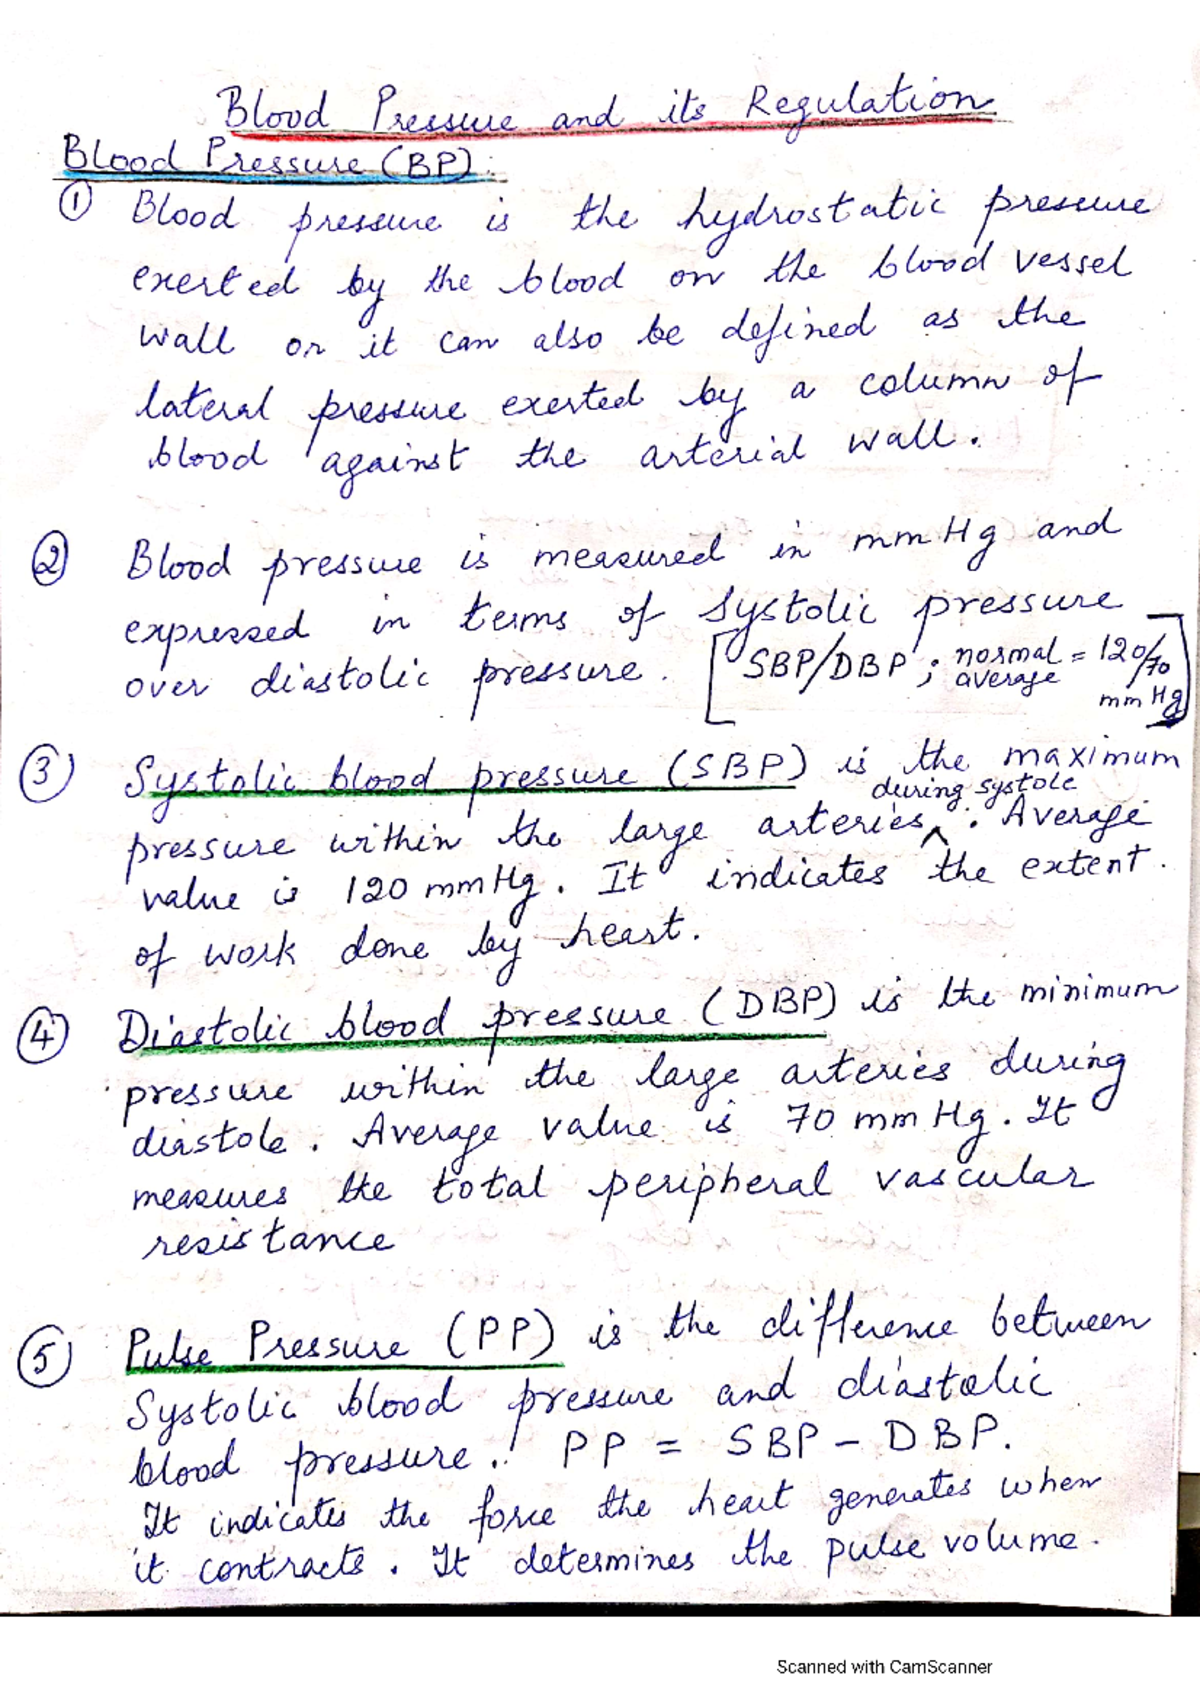 Blood Pressure and its Regulation
Blood Pressure (BP):
① Blood pressure is the hydrostatic pressure
exerted by the blood on the blood vessel
wall or it can also be defined as the
lateral pressure exerted by a column of
blood against the arterial wall.
② Blood pressure is measured in mm Hg and
expressed in terms of systolic pressure
over diastolic pressure. [SBP/DBP ; normal average = 120/70 mm Hg]
③ Systolic blood pressure (SBP) is the maximum
during systole
pressure within the large arteries ^. Average
value is 120 mmHg. It indicates the extent
of work done by heart.
④ Diastolic blood pressure (DBP) is the minimum
pressure within the large arteries during
diastole. Average value is 70 mm Hg. It
measures the total peripheral vascular
resistance
⑤ Pulse Pressure (PP) is the difference between
Systolic blood pressure and diastolic
blood pressure. PP = SBP - DBP.
It indicates the force the heart generates when
it contracts. It determines the pulse volume.
Scanned with CamScanner